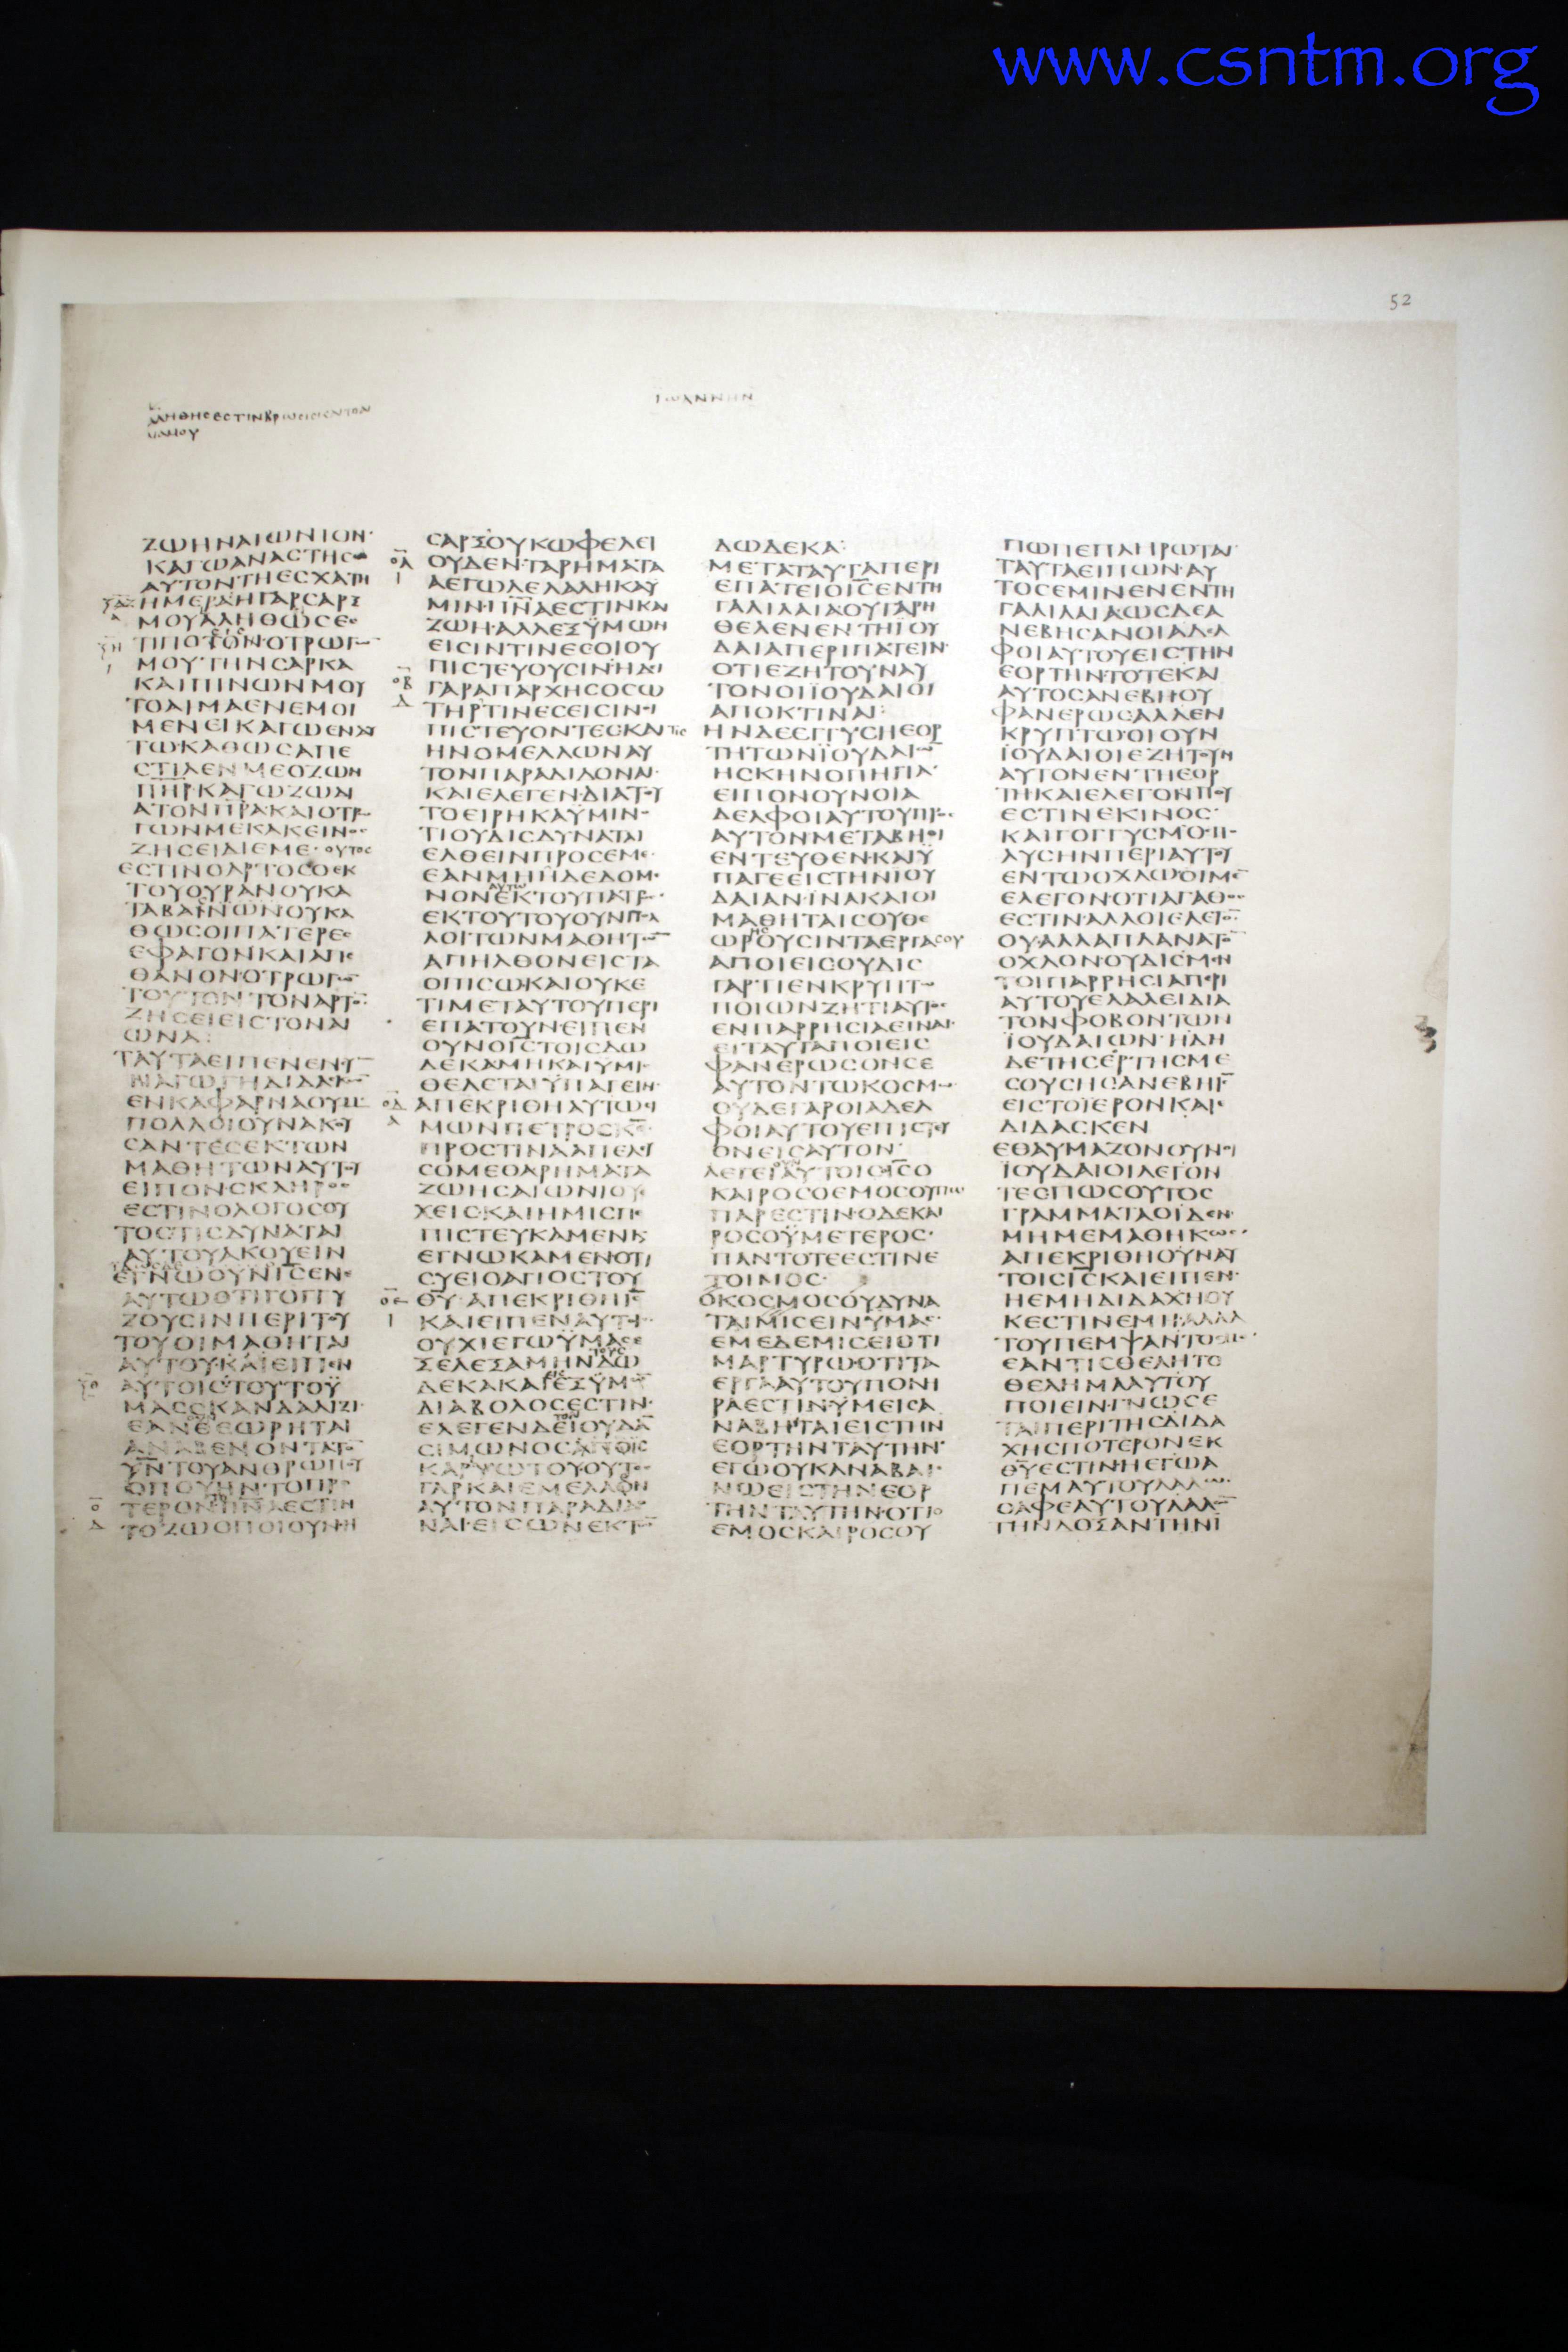 www.csntm.org
52
ΙΩΑΝΝΗΝ
ΖΩΗΝΑΙΩΝΙΟΝ·
ΚΑΓΩΑΝΑΣΤΗϹΩ
ΑΥΤΟΝΤΗΕϹΧΑΤΗ
ΗΜΕΡΑΗΓΑΡϹΑΡΞ
ΜΟΥΑΛΗΘΩϹΕ
ΜΟΥΤΗΝϹΑΡΚΑ
ΚΑΙΠΙΝΩΝΜΟΥ
ΤΟΑΙΜΑΕΝΕΜΟΙ
ΜΕΝΕΙΚΑΓΩΕΝΑΥ
ΤΩ·ΚΑΘΩϹΑΠΕ
ϹΤΙΛΕΝΜΕΟΖΩΝ
ΠΗΡΚΑΓΩΖΩΝ
ΓΩΝΜΕΚΑΚΕΙΝΟϹ
ΖΗϹΕΙΔΙΕΜΕ·ΟΥΤΟϹ
ΕϹΤΙΝΟΑΡΤΟϹΟΕΚ
ΤΟΥΟΥΡΑΝΟΥΚΑ
ΤΑΒΑΙΝΩΝΟΥΚΑ
ΘΩϹΟΙΠΑΤΕΡΕϹ
ΕΦΑΓΟΝΚΑΙΑΠΕ
ΘΑΝΟΝ·ΟΤΡΩΓΩ̅
ΤΟΥΤΟΝΤΟΝΑΡΤΟ̅
ΖΗϹΕΙΕΙϹΤΟΝΑΙ
ΩΝΑ:
ΤΑΥΤΑΕΙΠΕΝΕΝϹΥ
ΕΝΚΑΦΑΡΝΑΟΥΜ
ΠΟΛΛΟΙΟΥΝΑΚΟΥ
ϹΑΝΤΕϹΕΚΤΩΝ
ΜΑΘΗΤΩΝΑΥΤΟΥ
ΕΙΠΟΝϹΚΛΗΡΟϹ
ΕϹΤΙΝΟΛΟΓΟϹΟΥ
ΤΟϹΤΙϹΔΥΝΑΤΑΙ
ΑΥΤΟΥΑΚΟΥΕΙΝ
ΕΓΝΩΟΥΝΙ̅Ϲ̅ΕΝΕ
ΑΥΤΩΟΤΙΓΟΓΓΥ
ΖΟΥϹΙΝΠΕΡΙΤΟΥ
ΤΟΥΟΙΜΑΘΗΤΑΙ
ΑΥΤΟΥΚΑΙΕΙΠΕΝ
ΑΥΤΟΙϹΤΟΥΤΟΫ
ΜΑϹϹΚΑΝΔΑΛΙΖΙ·
Υ̅Ν̅ΤΟΥΑΝΘΡΩΠΟΥ
ΟΠΟΥΗΝΤΟΠΡΟ
ΤΟΖΩΟΠΟΙΟΥΝΗ
ϹΑΡΞΟΥΚΩΦΕΛΕΙ
ΟΥΔΕΝ·ΤΑΡΗΜΑΤΑ
ΑΕΓΩΛΕΛΑΛΗΚΑΫ
ΜΙΝ·Π̅Ν̅ΑΕϹΤΙΝΚΑΙ
ΖΩΗ·ΑΛΛΕΞΫΜΩΝ
ΕΙϹΙΝΤΙΝΕϹΟΙΟΥ
ΠΙϹΤΕΥΟΥϹΙΝ·ΗΔΙ
ΓΑΡΑΠΑΡΧΗϹΟϹΩ
ΤΗΡΤΙΝΕϹΕΙϹΙΝΟΙ
ΠΙϹΤΕΥΟΝΤΕϹΚΑΙΤΙϹ
ΗΝΟΜΕΛΛΩΝΑΥ
ΤΟΝΠΑΡΑΔΙΔΟΝΑΙ·
ΚΑΙΕΛΕΓΕΝ·ΔΙΑΤΟΥ
ΤΟΕΙΡΗΚΑΫΜΙΝΟ
ΤΙΟΥΔΙϹΔΥΝΑΤΑΙ
ΕΛΘΕΙΝΠΡΟϹΕΜΕ
ΕΚΤΟΥΤΟΥΟΥΝΠΟΛ
ΛΟΙΤΩΝΜΑΘΗΤΩ̅
ΑΠΗΛΘΟΝΕΙϹΤΑ
ΟΠΙϹΩΚΑΙΟΥΚΕ
ΤΙΜΕΤΑΥΤΟΥΠΕΡΙ
ΕΠΑΤΟΥΝ·ΕΙΠΕΝ
ΟΥΝΟΙ̅Ϲ̅ΤΟΙϹΔΩ
ΔΕΚΑΜΗΚΑΙΥΜΙϹ
ΘΕΛΕΤΑΙΫΠΑΓΕΙΝ·
ΑΠΕΚΡΙΘΗΑΥΤΩϹΙ
ΜΩΝΠΕΤΡΟϹΚ̅Ε̅
ΠΡΟϹΤΙΝΑΑΠΕΛΕΥ
ϹΟΜΕΘΑΡΗΜΑΤΑ
ΖΩΗϹΑΙΩΝΙΟΥΕ
ΧΕΙϹ·ΚΑΙΗΜΙϹΠΕ
ΠΙϹΤΕΥΚΑΜΕΝΚ
ΕΓΝΩΚΑΜΕΝΟΤΙ
ϹΥΕΙΟΑΓΙΟϹΤΟΥ
Θ̅Υ̅·ΑΠΕΚΡΙΘΗΙ̅Ϲ̅
ΚΑΙΕΙΠΕΝΑΥΤΟΙ
ΟΥΧΙΕΓΩΫΜΑϹΕ
ΔΙΑΒΟΛΟϹΕϹΤΙΝ·
ΓΑΡΚΑΙΕΜΕΛΛΕΝ
ΑΥΤΟΝΠΑΡΑΔΙΔΟ
ΝΑΙ·ΕΙϹΩΝΕΚΤΩ̅
ΔΩΔΕΚΑ:
ΜΕΤΑΤΑΥΤΑΠΕΡΙ
ΕΠΑΤΕΙΟΙ̅Ϲ̅ΕΝΤΗ
ΓΑΛΙΛΑΙΑΟΥΓΑΡΗ
ΘΕΛΕΝΕΝΤΗΪΟΥ
ΔΑΙΑΠΕΡΙΠΑΤΕΙΝ·
ΟΤΙΕΖΗΤΟΥΝΑΥ
ΤΟΝΟΙΪΟΥΔΑΙΟΙ
ΑΠΟΚΤΙΝΑΙ:
ΗΝΔΕΕΓΓΥϹΗΕΟΡ
ΤΗΤΩΝΪΟΥΔΑΙΩ̅
ΗϹΚΗΝΟΠΗΓΙΑ
ΕΙΠΟΝΟΥΝΟΙΑ
ΔΕΛΦΟΙΑΥΤΟΥΠΡΟϹ
ΑΥΤΟΝ·ΜΕΤΑΒΗΘΙ
ΕΝΤΕΥΘΕΝ·ΚΑΙΫ
ΠΑΓΕΕΙϹΤΗΝΪΟΥ
ΔΑΙΑΝ·ΪΝΑΚΑΙΟΙ
ΜΑΘΗΤΑΙϹΟΥΘΕ
ΑΠΟΙΕΙϹΟΥΔΙϹ
ΓΑΡΤΙΕΝΚΡΥΠΤΩ
ΠΟΙΩΝΖΗΤΙΑΥΤΟϹ
ΕΝΠΑΡΡΗϹΙΑΕΙΝΑΙ·
ΕΙΤΑΥΤΑΠΟΙΕΙϹ
ΦΑΝΕΡΩϹΟΝϹΕ
ΑΥΤΟΝΤΩΚΟϹΜΩ
ΟΥΔΕΓΑΡΟΙΑΔΕΛ
ΦΟΙΑΥΤΟΥΕΠΙϹΤΕΥ
ΟΝΕΙϹΑΥΤΟΝ·
ΚΑΙΡΟϹΟΕΜΟϹΟΥΠΩ
ΠΑΡΕϹΤΙΝ·ΟΔΕΚΑΙ
ΡΟϹΟΫΜΕΤΕΡΟϹ·
ΠΑΝΤΟΤΕΕϹΤΙΝΕ
ΤΟΙΜΟϹ·
ΟΚΟϹΜΟϹΟΥΔΥΝΑ
ΤΑΙΜΙϹΕΙΝΥΜΑϹ
ΕΜΕΔΕΜΙϹΕΙΟΤΙ
ΜΑΡΤΥΡΩΟΤΙΤΑ
ΕΡΓΑΑΥΤΟΥΠΟΝΗ
ΡΑΕϹΤΙΝ·ΥΜΕΙϹΑ
ΝΑΒΗΤΑΙΕΙϹΤΗΝ
ΕΟΡΤΗΝΤΑΥΤΗΝ·
ΕΓΩΟΥΚΑΝΑΒΑΙ
ΝΩΕΙϹΤΗΝΕΟΡ
ΤΗΝΤΑΥΤΗΝ·ΟΤΙΟ
ΕΜΟϹΚΑΙΡΟϹΟΥ
ΠΩΠΕΠΛΗΡΩΤΑΙ·
ΤΑΥΤΑΕΙΠΩΝ·ΑΥ
ΤΟϹΕΜΙΝΕΝΕΝΤΗ
ΓΑΛΙΛΑΙΑΩϹΔΕΑ
ΝΕΒΗϹΑΝΟΙΑΔΕΛ
ΦΟΙΑΥΤΟΥΕΙϹΤΗΝ
ΕΟΡΤΗΝ·ΤΟΤΕΚΑΙ
ΑΥΤΟϹΑΝΕΒΗ·ΟΥ
ΦΑΝΕΡΩϹΑΛΛΕΝ
ΚΡΥΠΤΩ·ΟΙΟΥΝ
ΪΟΥΔΑΙΟΙΕΖΗΤΟΥΝ
ΑΥΤΟΝΕΝΤΗΕΟΡ
ΤΗΚΑΙΕΛΕΓΟΝΠΟΥ
ΕϹΤΙΝΕΚΙΝΟϹ·
ΚΑΙΓΟΓΓΥϹΜΟϹΠΟ
ΛΥϹΗΝΠΕΡΙΑΥΤΟΥ
ΕΝΤΩΟΧΛΩ·ΟΙΜΕ̅
ΕΛΕΓΟΝ·ΟΤΙΑΓΑΘΟϹ
ΕϹΤΙΝ·ΑΛΛΟΙΕΛΕΓΟ̅
ΟΥ·ΑΛΛΑΠΛΑΝΑΤΟ̅
ΟΧΛΟΝ·ΟΥΔΙϹΜΕΝ
ΤΟΙΠΑΡΡΗϹΙΑΠΕΡΙ
ΑΥΤΟΥΕΛΑΛΕΙΔΙΑ
ΤΟΝΦΟΒΟΝΤΩΝ
ΪΟΥΔΑΙΩΝ·ΗΔΗ
ΔΕΤΗϹΕΟΡΤΗϹΜΕ
ϹΟΥϹΗϹΑΝΕΒΗΙ̅Ϲ̅
ΕΙϹΤΟΪΕΡΟΝΚΑΙΕ
ΔΙΔΑϹΚΕΝ
ΕΘΑΥΜΑΖΟΝΟΥΝΟΙ
ΪΟΥΔΑΙΟΙΛΕΓΟΝ
ΤΕϹΠΩϹΟΥΤΟϹ
ΓΡΑΜΜΑΤΑΟΙΔΕΝ·
ΜΗΜΕΜΑΘΗΚΩϹ·
ΑΠΕΚΡΙΘΗΟΥΝΑΥ
ΤΟΙϹΙ̅Ϲ̅ΚΑΙΕΙΠΕΝ·
ΗΕΜΗΔΙΔΑΧΗΟΥ
ΚΕϹΤΙΝΕΜΗΑΛΛΑ
ΤΟΥΠΕΜΨΑΝΤΟϹΜΕ·
ΕΑΝΤΙϹΘΕΛΗΤΟ
ΘΕΛΗΜΑΑΥΤΟΥ
ΠΟΙΕΙΝ·ΓΝΩϹΕ
ΤΑΙΠΕΡΙΤΗϹΔΙΔΑ
ΧΗϹΠΟΤΕΡΟΝΕΚ
Θ̅Υ̅ΕϹΤΙΝ·ΗΕΓΩΑ
ΠΕΜΑΥΤΟΥΛΑΛΩ·
ΟΑΦΕΑΥΤΟΥΛΑΛΩ̅
ΤΗΝΔΟΞΑΝΤΗΝΪ